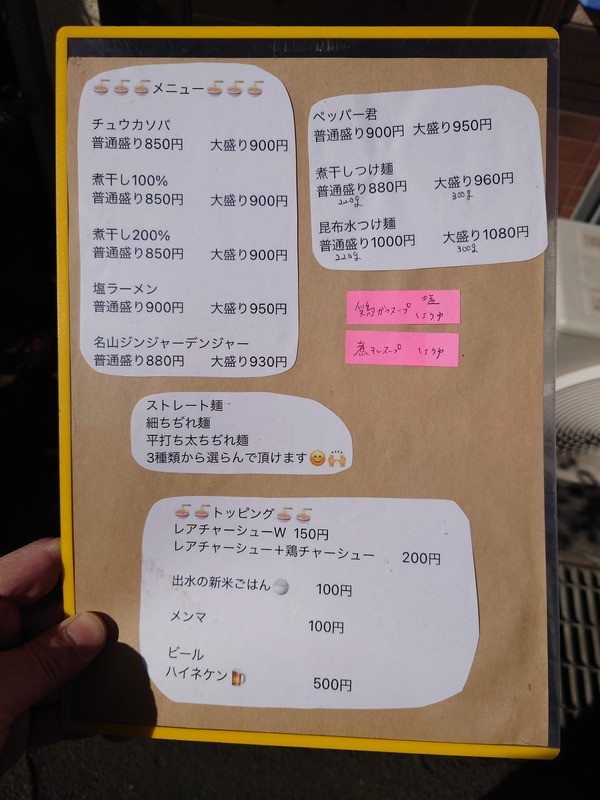 🍜🍜🍜メニュー🍜🍜🍜
チュウカソバ
普通盛り850円 大盛り900円
煮干し100%
普通盛り850円 大盛り900円
煮干し200%
普通盛り850円 大盛り900円
塩ラーメン
普通盛り900円 大盛り950円
名山ジンジャーデンジャー
普通盛り880円 大盛り930円
ペッパー君
普通盛り900円 大盛り950円
煮干しつけ麺
普通盛り880円 大盛り960円
220g 300g
昆布水つけ麺
普通盛り1000円 大盛り1080円
220g 300g
塩
鶏ガラスープ しょうゆ
煮干しスープ しょうゆ
ストレート麺
細ちぢれ麺
平打ち太ちぢれ麺
3種類から選らんで頂けます😊🙌
🍜🍜トッピング🍜🍜
レアチャーシューW 150円
レアチャーシュー＋鶏チャーシュー 200円
出水の新米ごはん🍚 100円
メンマ 100円
ビール
ハイネケン🍺 500円